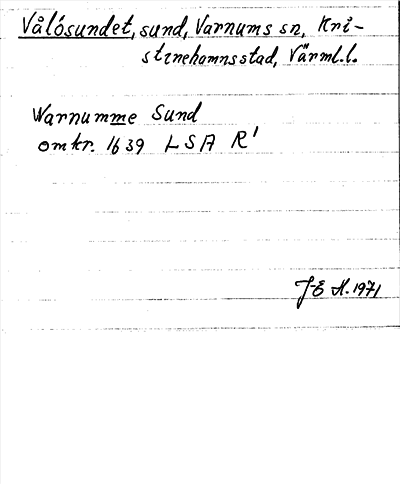 Vålösundet, sund, Varnums sn, Kri-
stinehamns stad, Värml.l.
Warnumme Sund
omkr. 1639 LSA R1
J-E H. 1971